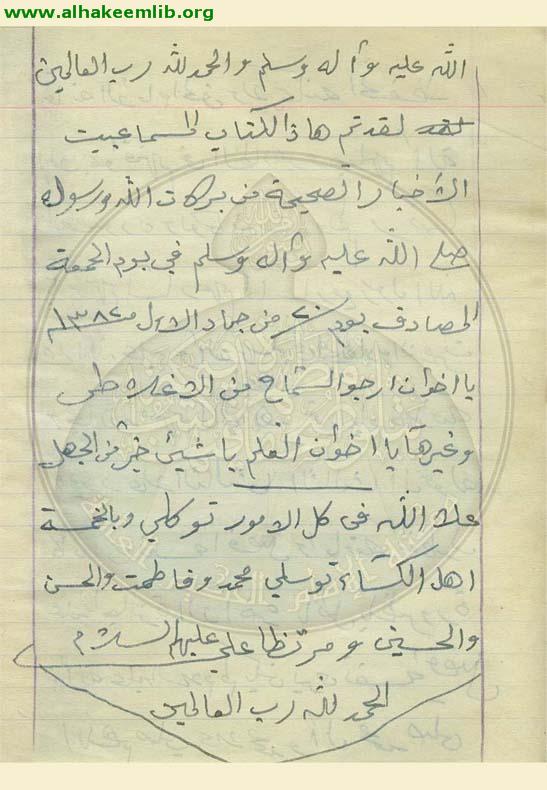 www.alhakeemlib.org
الله عليه وأله وسلم والحمد لله رب العالمين
لقد تم هاذا الكتاب المسما عبيت
الأخبار الصحيحة من بركات الله ورسوله
صل الله عليه وأله وسلم في يوم الجمعة
المصادف يوم ٢٠ من جماد الاول ١٣٨٢م
يا اخوان ارجو السماح من الاغلاطى
وغيرها يا اخوان العلم يا شيئ خير من الجهل
علا الله في كل الامور توكلي وبالخمسة
اهل الكساء توسلي محمد وفاطمت والحسن
والحسين ومرتظا علي عليهم السلام
الحمد لله رب العالمين